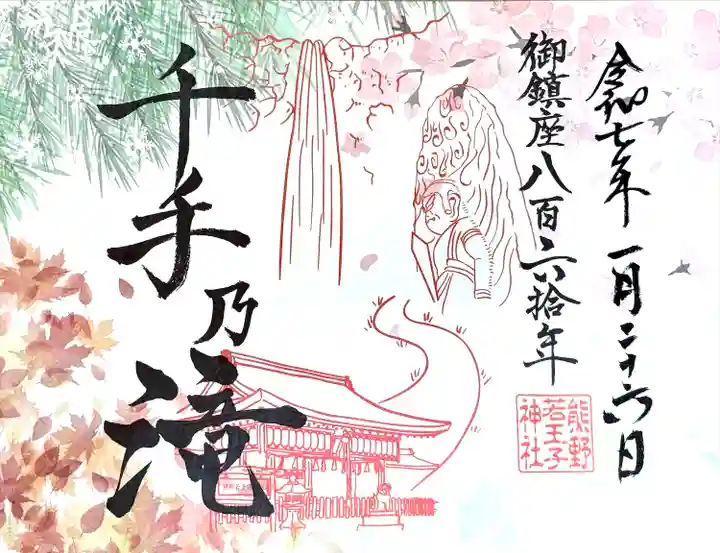 令和七年一月二十六日
御鎮座八百六拾年
千手乃滝
熊野
若王子
神社